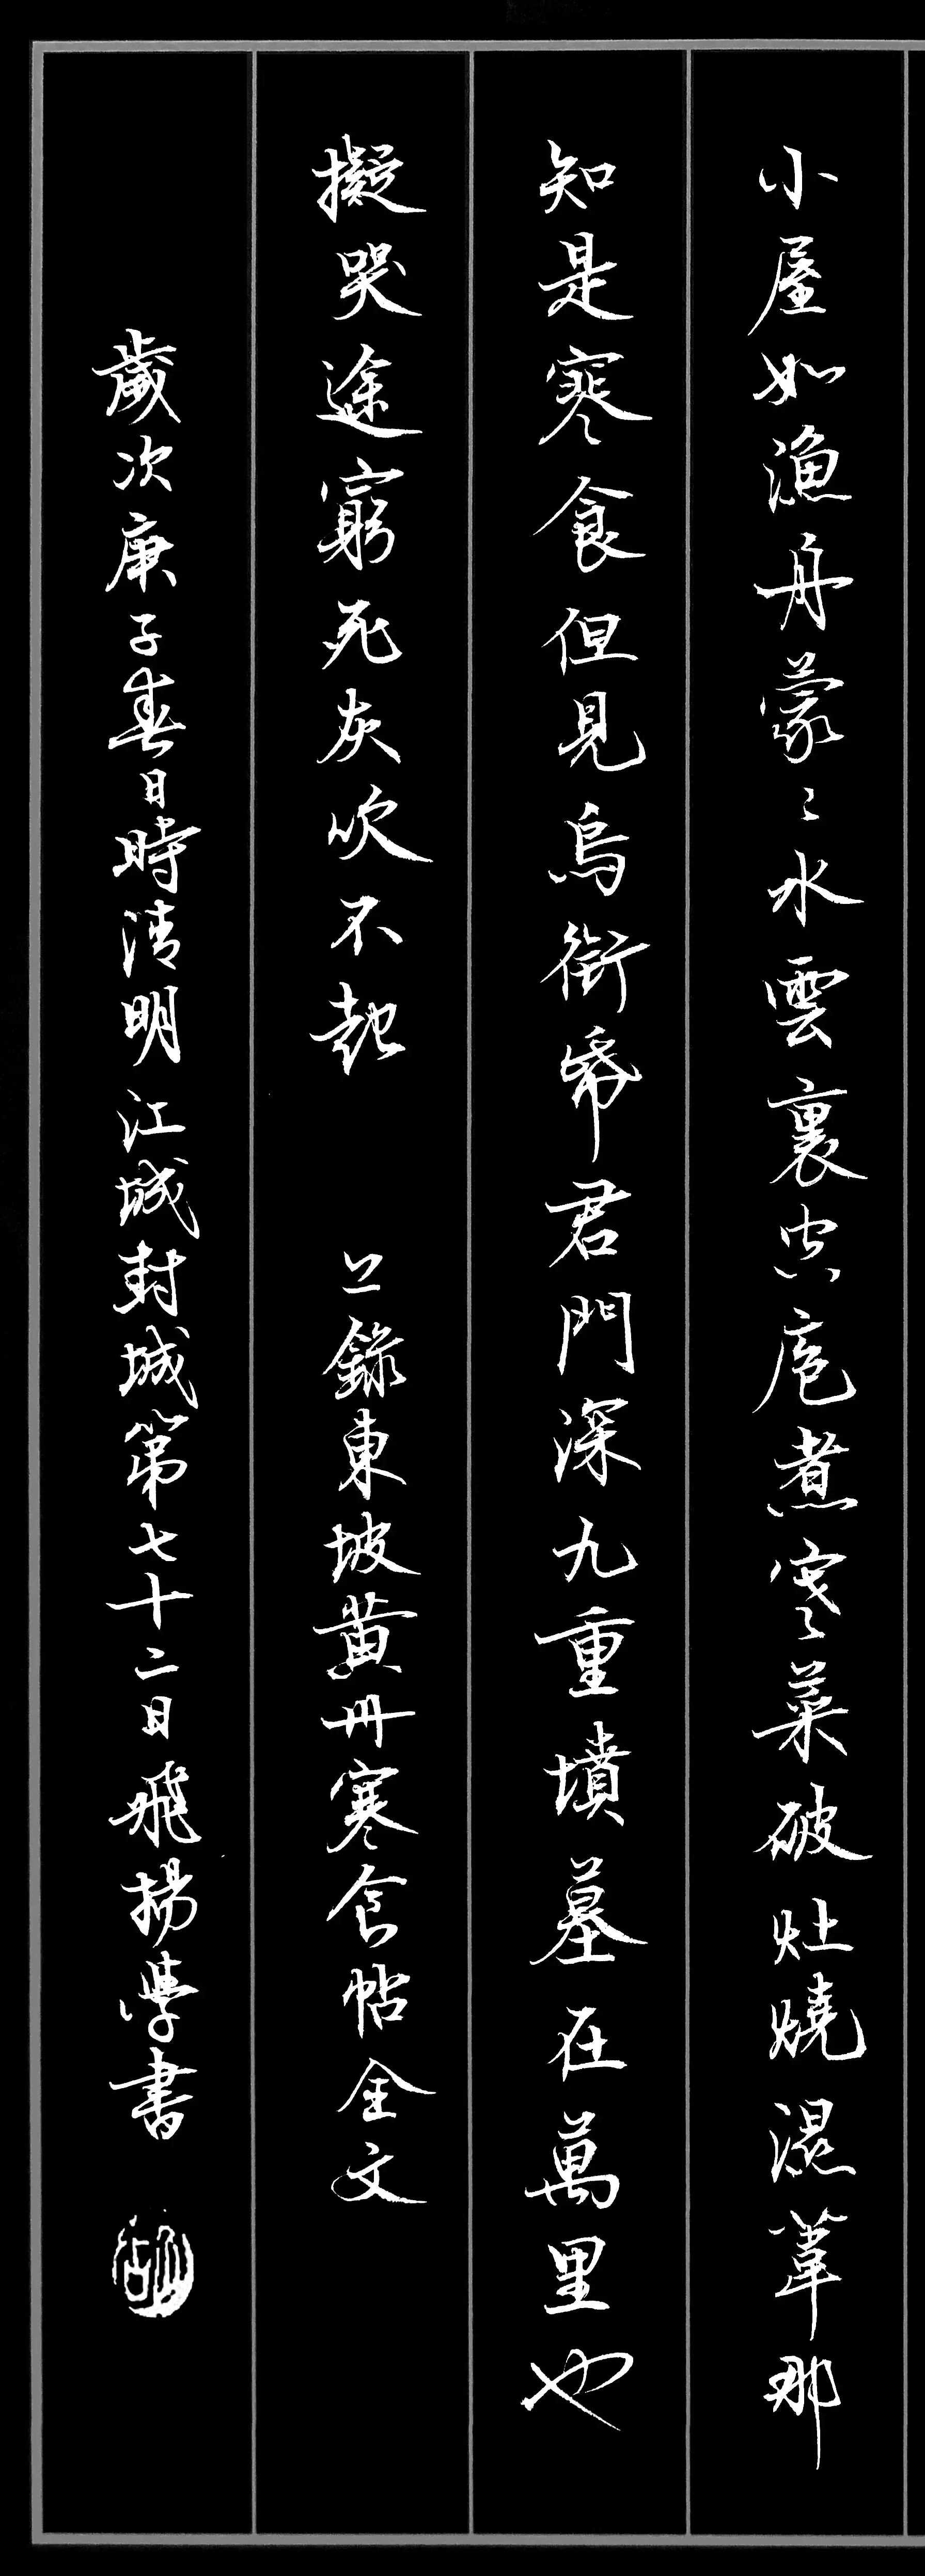 小屋如漁舟蒙〻水雲裏空庖煮寒菜破灶燒濕葦那
知是寒食但見烏銜帋君門深九重墳墓在萬里也
擬哭途窮死灰吹不起 上錄東坡黃州寒食帖全文
歲次庚子春日時清明江城封城第七十二日飛揚學書